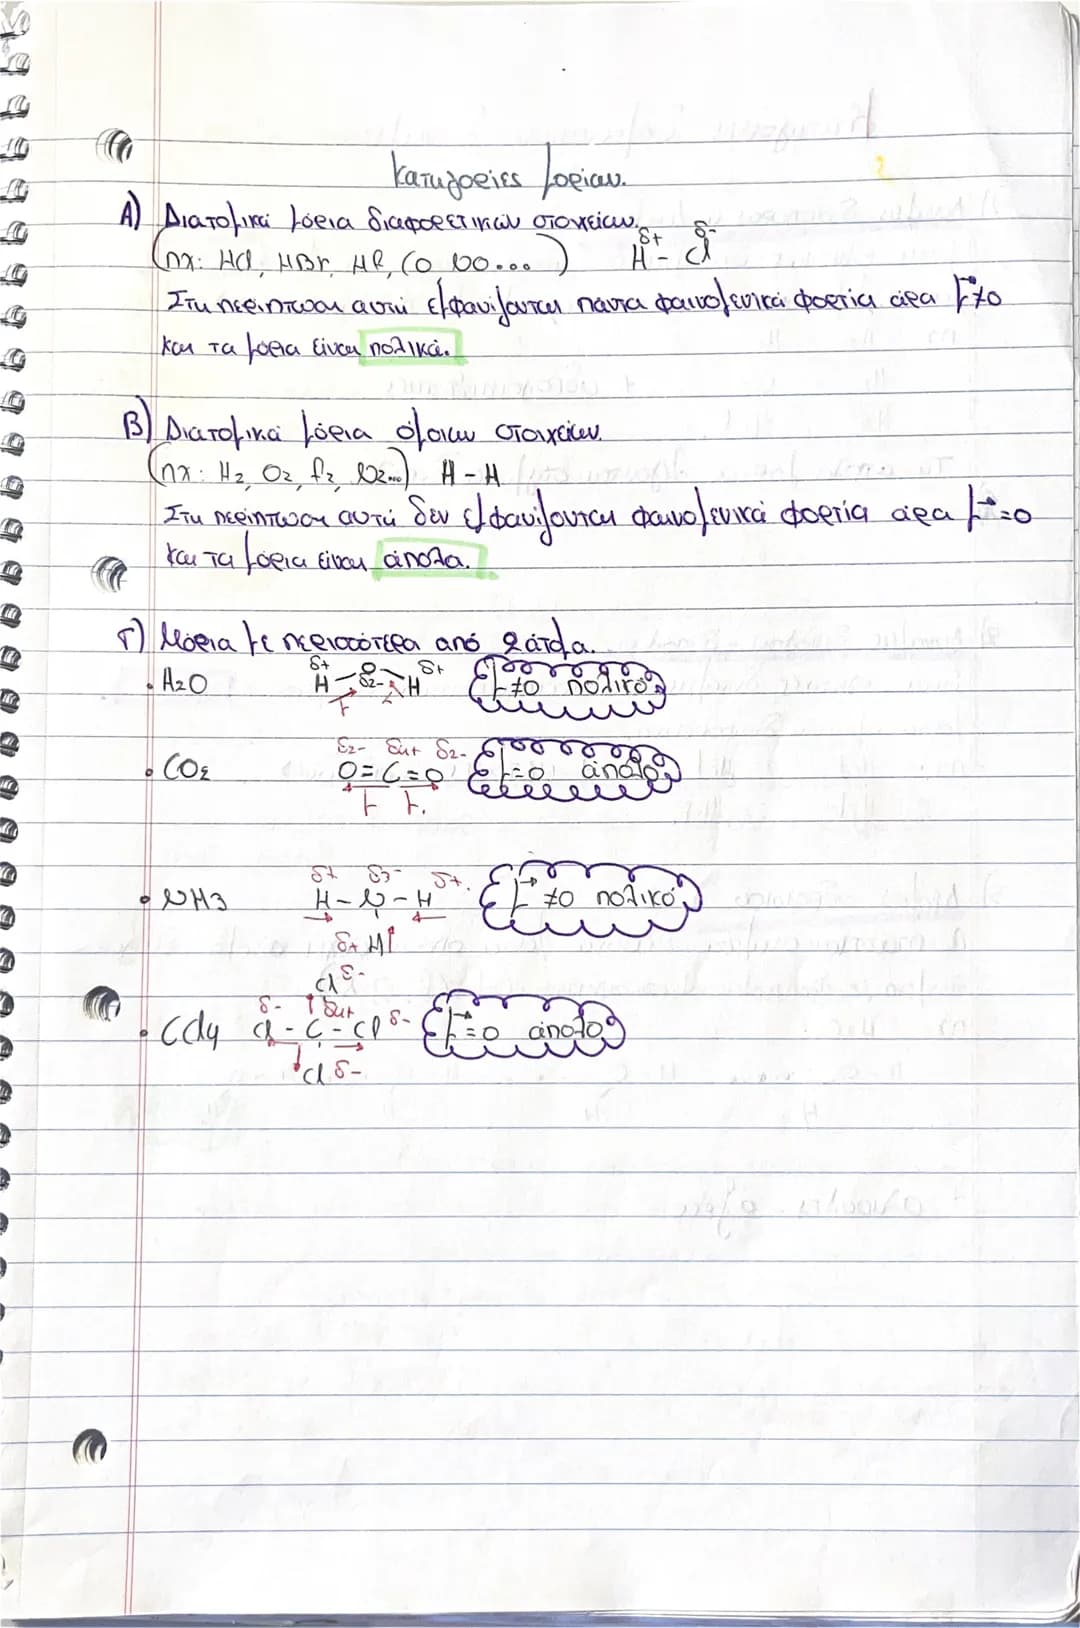 Κατηγορίες μορίων.
Α) Διατομικά μόρια διαφορετικών στοιχείων.
(πχ: HCl, HBr, HF, CO, NO...) δ+ δ-
H - Cl
Στη περίπτωση αυτή εμφανίζονται πάντα φαινομενικά φορτία άρα μ≠0
και τα μόρια είναι πολικά.
Β) Διατομικά μόρια όμοιων στοιχείων.
(πχ: H2, O2, F2, N2...) H - H
Στη περίπτωση αυτή δεν εμφανίζονται φαινομενικά φορτία άρα μ=0
και τα μόρια είναι άπολα.
Γ) Μόρια με περισσότερα από 2 άτομα.
δ+ O δ+
• H2O H δ2- H μ≠0 πολικό
μ
δ2- δ4+ δ2-
• CO2 O=C=O μ=0 άπολο
μ μ.
δ+ δ3- δ+.
• NH3 H-N-H μ≠0 πολικό
δ+ H
Cl δ-
δ- δ4+
• CCl4 Cl - C - Cl δ- μ=0 άπολο
Cl δ-